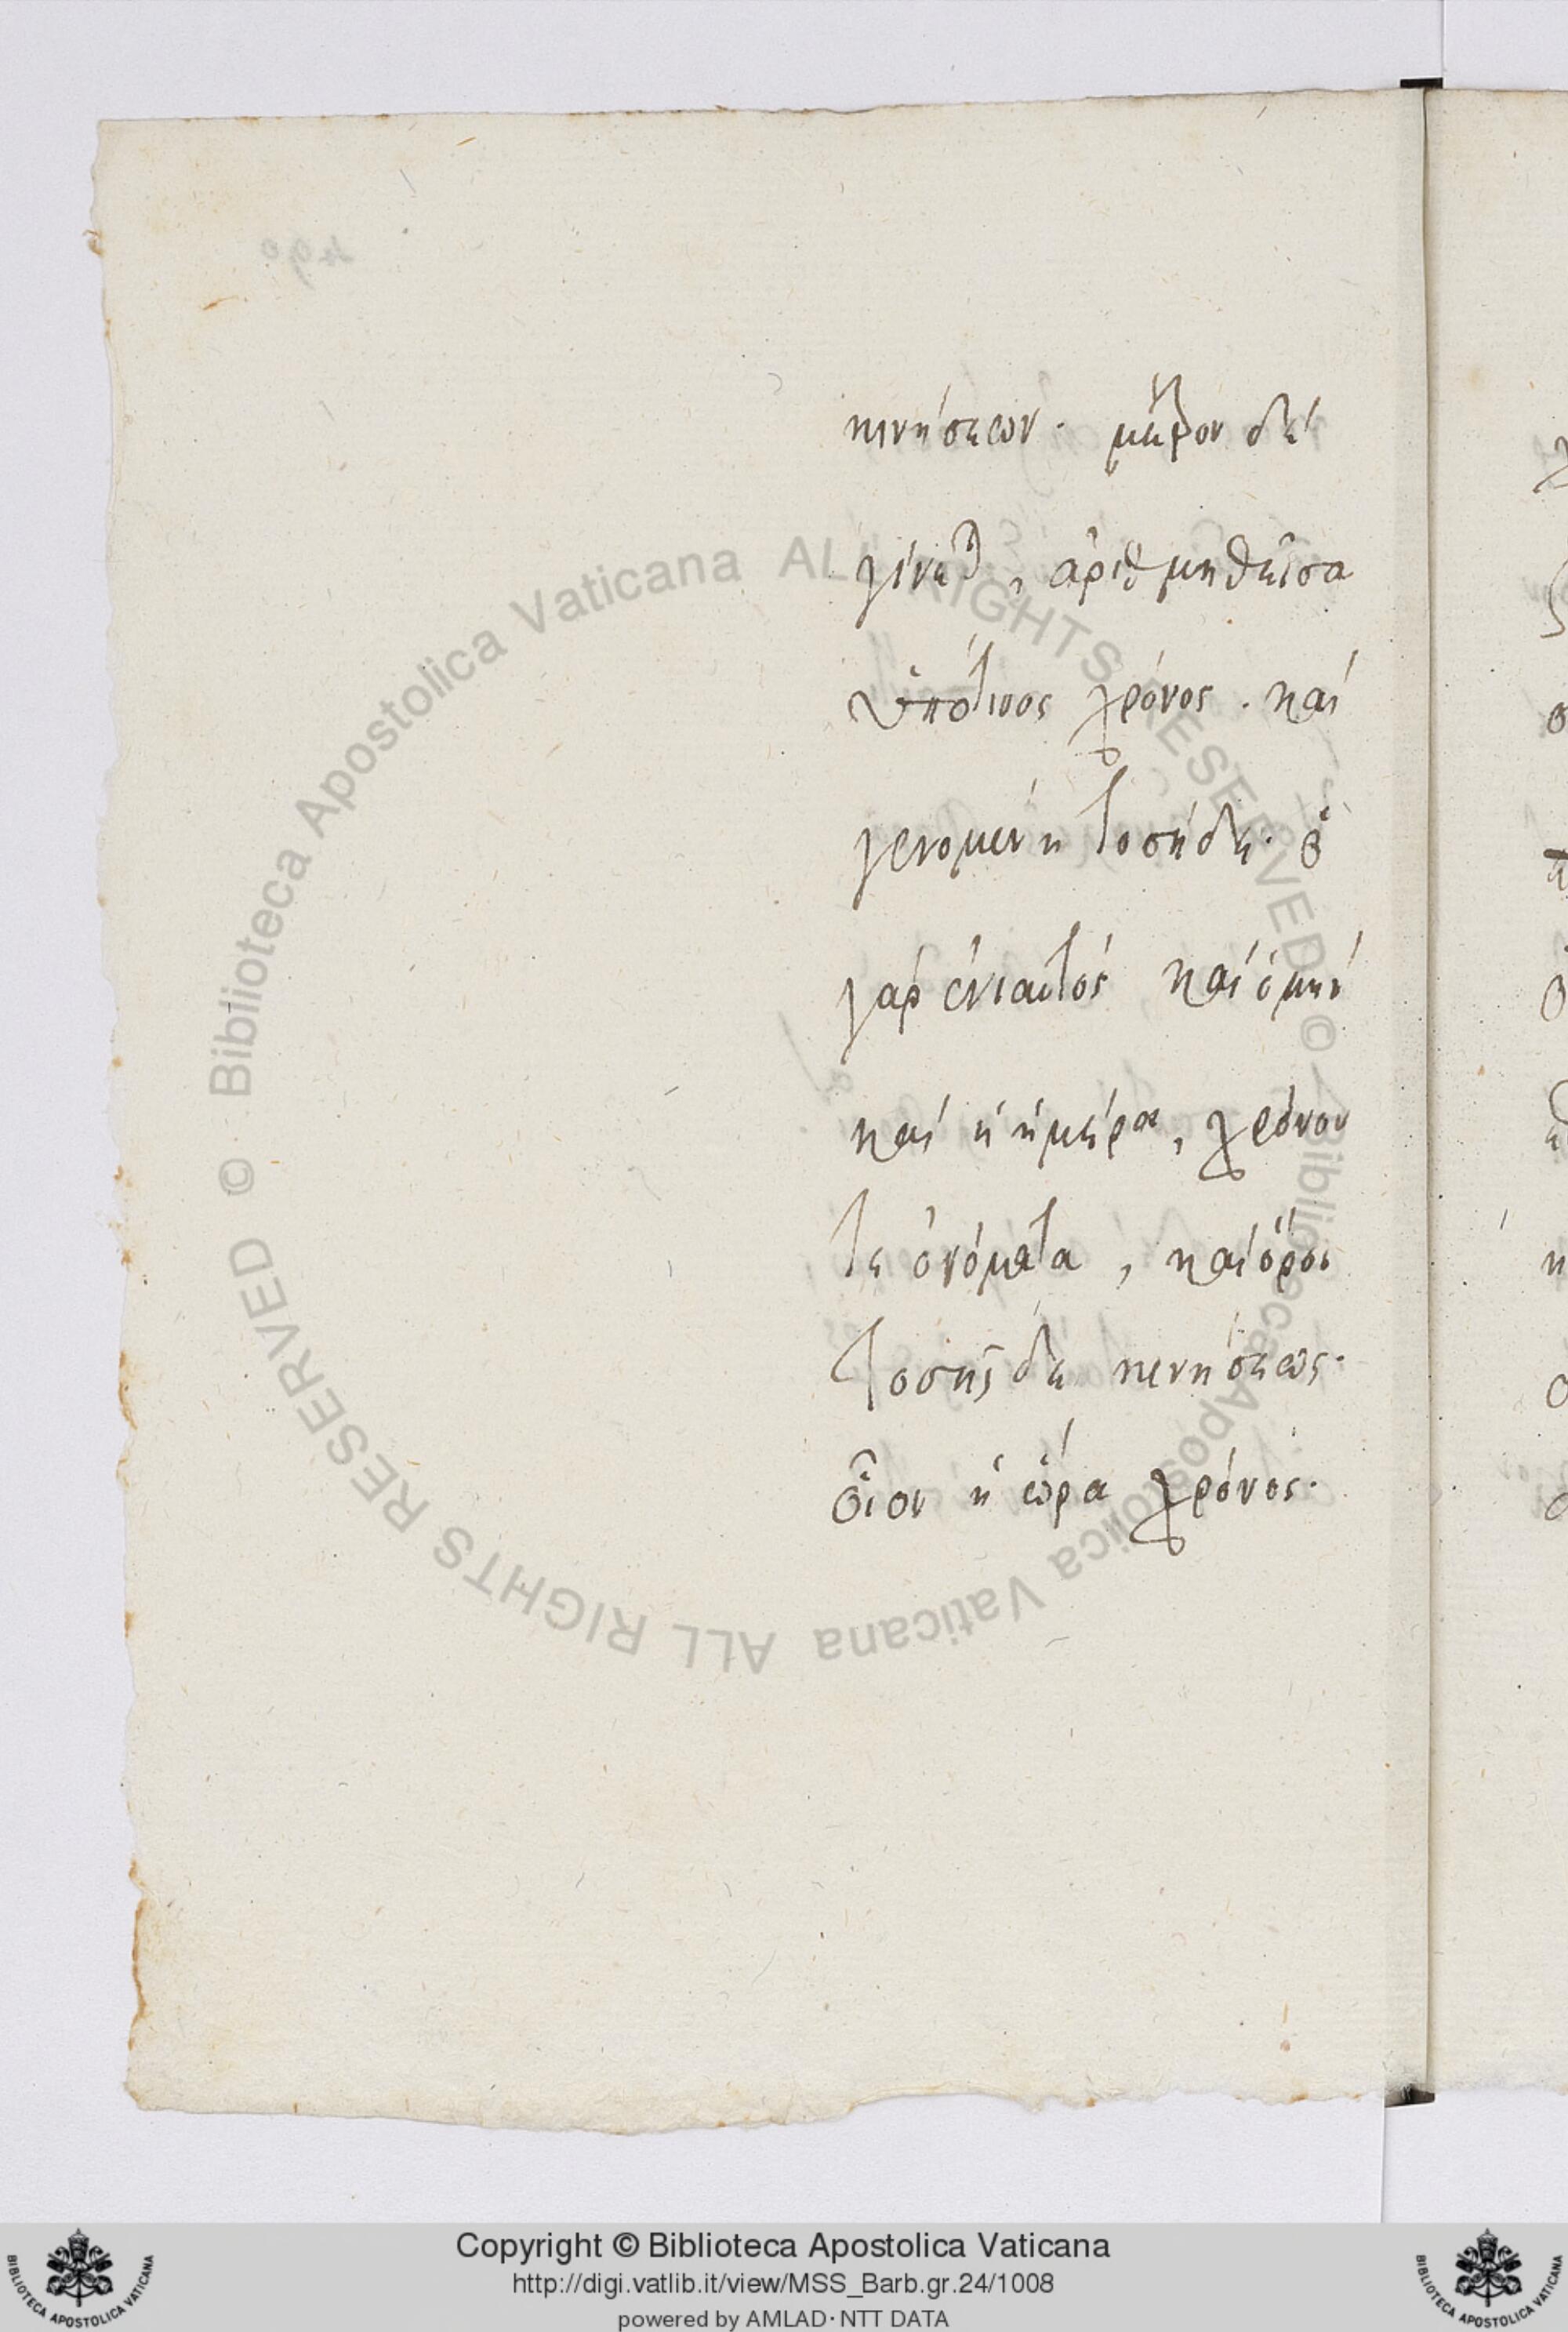 κινήσεων. μέτρον δέ
γίνεται, ἀριθμηθεῖσα
ὑπότινος χρόνος. καί
γενομένη τοσήδε. ὁ
γάρ ἐνιαυτός καί ὁ μήν
καί ἡ ἡμέρα, χρόνου
τε ὀνόματα, καί ὅροι
τοσῆςδε κινήσεως.
οἷον ἡ ὥρα χρόνος.
© Biblioteca Apostolica Vaticana ALL RIGHTS RESERVED © Biblioteca Apostolica Vaticana ALL RIGHTS RESERVED
Copyright © Biblioteca Apostolica Vaticana
http://digi.vatlib.it/view/MSS_Barb.gr.24/1008
powered by AMLAD·NTT DATA
BIBLIOTECA APOSTOLICA VATICANA
BIBLIOTECA APOSTOLICA VATICANA